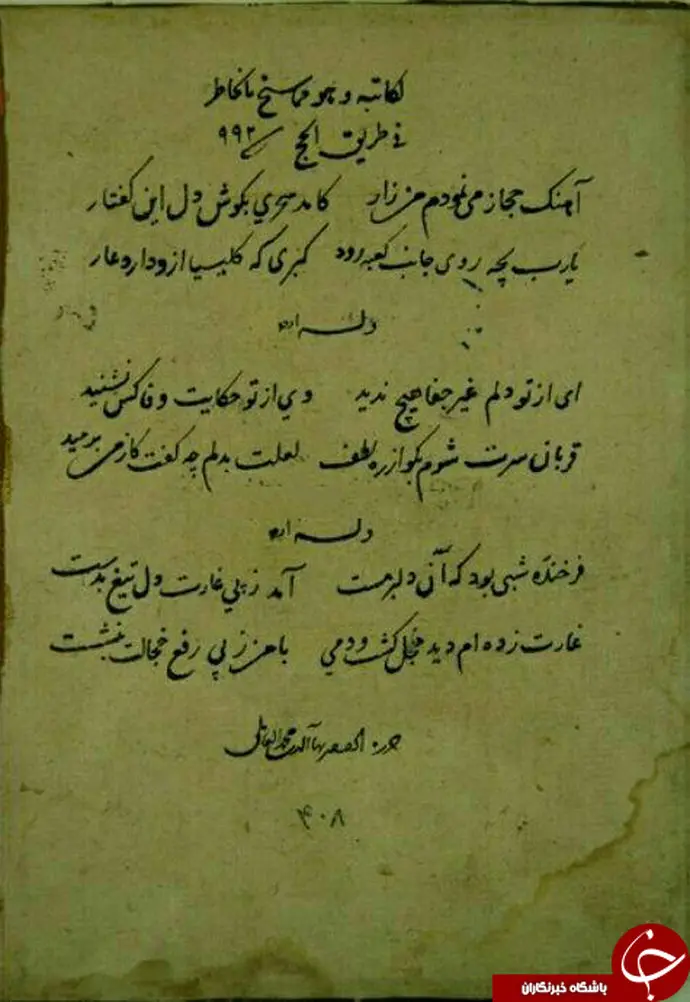 لکاتبه و هو مما سنح بالخاطر
فی طریق الحج سنه ۹۹۲
آهنک حجاز می نمودم من زار کامد سحری بکوش دل این کفتار
یارب بچه روی جانب کعبه رود کبری که کلیسیا ازو دارد عار
وله
ای از تو دلم غیر جفا هیچ ندید وی از تو حکایت وفا کس نشنید
قربان سرت شوم بکو از ره لطف لعلت بدلم چه کفت کز من برمید
وله
فرخنده شبی بود که آن دلبر مست آمد ز پی غارت دل تیغ بدست
غارت زده ام دید خجل کشت و دمی با من ز پی رفع خجالت بنشست
حرره بهاء الدین محمد العاملی
۴۰۸
باشگاه خبرنگاران